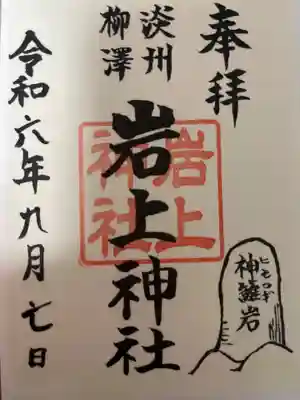 奉拝
淡州
柳澤
岩上神社
岩上
神社
ヒモロギ
神籬岩
令和六年九月七日